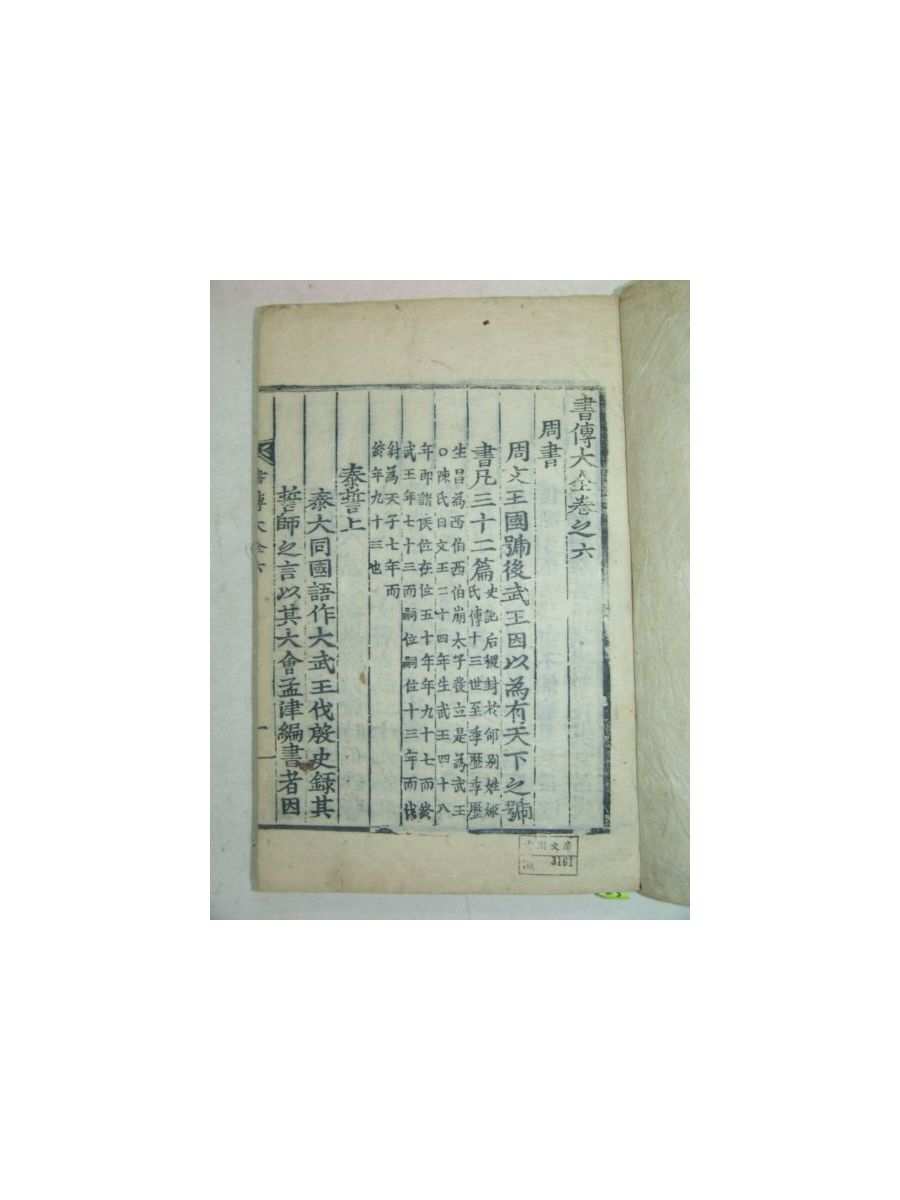 書傳大全卷之六
周書
周文王國號後武王因以為有天下之號
書凡三十二篇
史記后稷封於邰别姓姬
氏傳十三世至季歷季歷
生昌為西伯西伯崩太子發立是為武王
○陳氏曰文王二十四年生武王四十八
年即諸侯位在位五十年年九十七而終
武王年七十三而嗣位嗣位十三年而伐
紂為天子七年而
終年九十三也
泰誓上
泰大同國語作大武王伐殷史錄其
誓師之言以其大會孟津編書者因
書傳大全六
一
文庫
3161